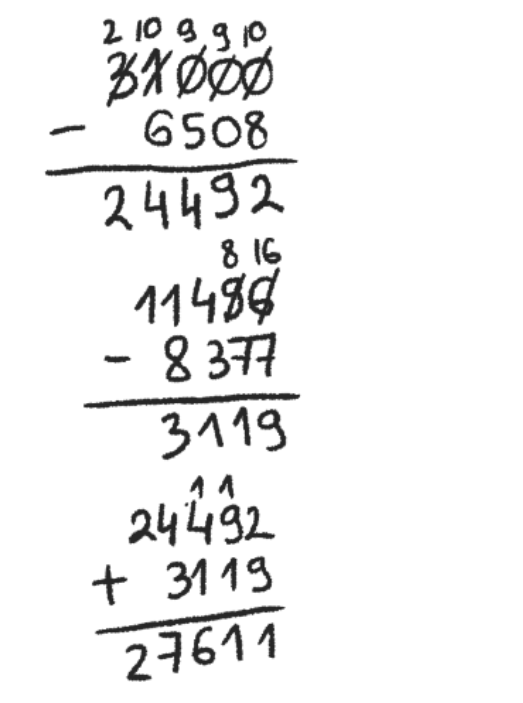 2 10 9 9 10
31000
- 6508
24492
8 16
11496
- 8377
3119
1 1
24492
+ 3119
27611